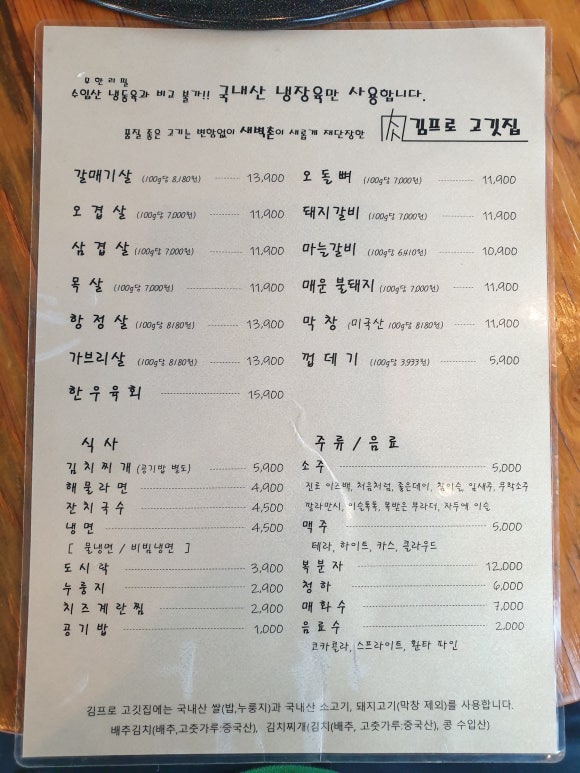 무한리필
수입산 냉동육과 비교 불가!! 국내산 냉장육만 사용합니다.
품질 좋은 고기는 변함없이 새벽촌이 새롭게 재단장한 肉 김프로 고깃집
갈매기살 (100g당 8,180원) 13,900
오겹살 (100g당 7,000원) 11,900
삼겹살 (100g당 7,000원) 11,900
목살 (100g당 7,000원) 11,900
항정살 (100g당 8180원) 13,900
가브리살 (100g당 8180원) 13,900
한우육회 15,900
오돌뼈 (100g당 7,000원) 11,900
돼지갈비 (100g당 7,000원) 11,900
마늘갈비 (100g당 6,410원) 10,900
매운 불돼지 (100g당 7,000원) 11,900
막창 (미국산 100g당 8180) 11,900
껍데기 (100g당 3,933원) 5,900
식사
김치찌개 (공기밥 별도) 5,900
해물라면 4,900
잔치국수 4,500
냉면 4,500
[ 물냉면 / 비빔냉면 ]
도시락 3,900
누룽지 2,900
치즈계란찜 2,900
공기밥 1,000
주류/음료
소주 5,000
진로 이즈백, 처음처럼, 좋은데이, 참이슬, 잎새주, 무학소주
깔라만시, 이슬톡톡, 복받은 부라더, 자두에 이슬
맥주 5,000
테라, 하이트, 카스, 클라우드
복분자 12,000
청하 6,000
매화수 7,000
음료수 2,000
코카콜라, 스프라이트, 환타 파인
김프로 고깃집에는 국내산 쌀(밥,누룽지)과 국내산 소고기, 돼지고기(막창 제외)를 사용합니다.
배추김치(배추,고춧가루:중국산), 김치찌개(김치(배추, 고춧가루:중국산), 콩 수입산)